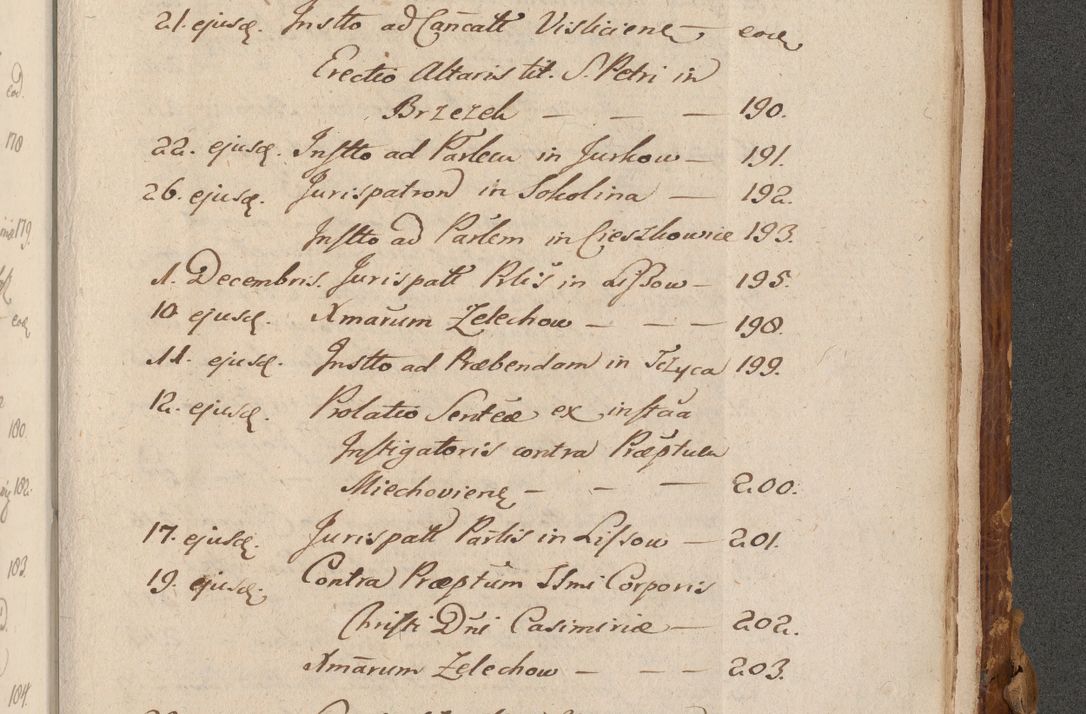 21. ejusq. Instto ad Cancatt Visliciene, eodē
Erectio Altaris tit. S. Petri in
Brzezek — — — 190.
22. ejusq. Instto ad Parlem in Jurkow — 191.
26. ejusq. Jurispatron in Sokolina — 192.
Instto ad Parlem in Cieszkowice 193.
1. Decembris. Jurispatt Prlis in Lissow — 195.
10. ejusq. Xmarum Zelechow — — — 198.
11. ejusq. Instto ad Præbendam in Tczyca 199.
12. ejusq. Prolatio Sentēæ ex instāa
Instigatoris contra Præptum
Miechovienę — — — 200.
17. ejusq. Jurispatt Partis in Lissow — 201.
19. ejusq. Contra Præptum SSmi Corporis
Christi Dñi Casimiriæ — 202.
Xmārum Zelechow — — — 203.
eod.
178
179.
eoq
180.
182.
183.
184.